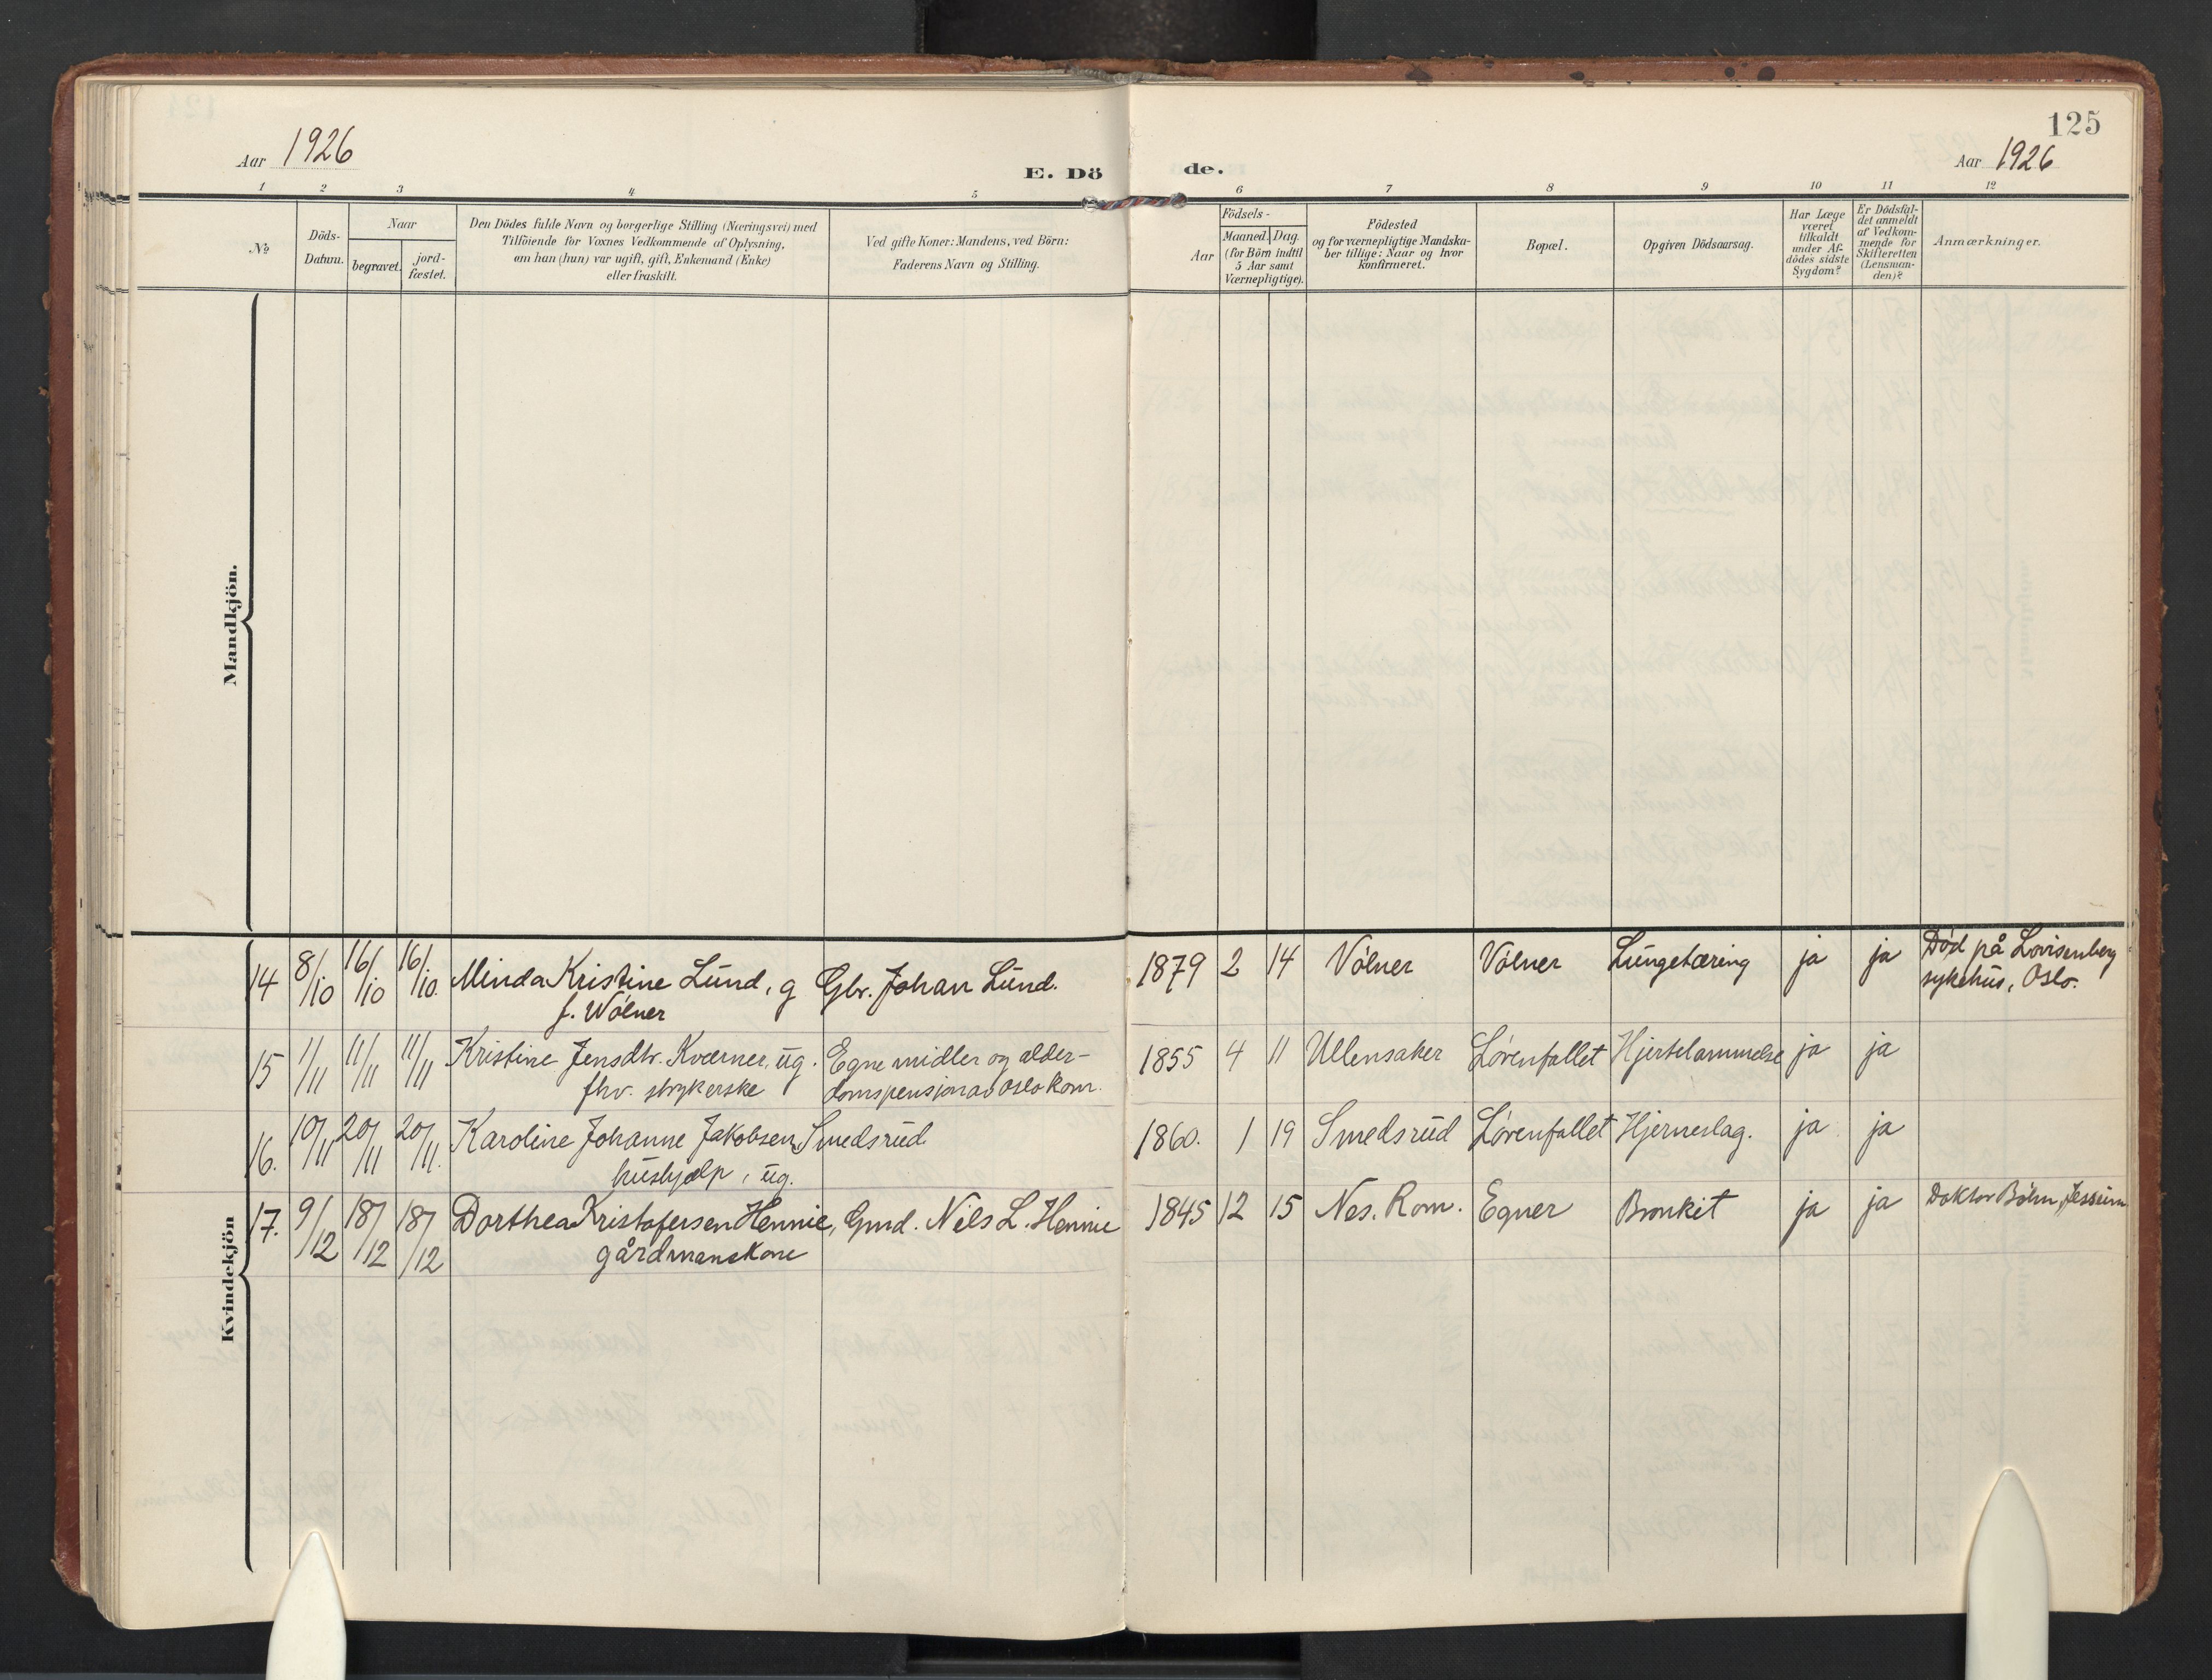 125
Aar 1926
Aar 1926
E. Dö
de.
1 2 3 4 5
6 7 8 9 10 11 12
No
Döds-
Datum.
Naar
begravet.
jord-
fæstet.
Den Dödes fulde Navn og borgerlige Stilling (Næringsvei) med
Tilföiende for Voxnes Vedkommende af Oplysning,
om han (hun) var ugift, gift, Enkemand (Enke)
eller fraskilt.
Ved gifte Koner: Mandens, ved Börn:
Faderens Navn og Stilling.
Födsels-
Aar
Maaned. Dag.
(for Börn indtil
5 Aar samt
Værnepligtige).
Födested
og for værnepligtige Mandska-
ber tillige: Naar og hvor
konfirmeret.
Bopæl.
Opgiven Dödsaarsag.
Har Læge
været
tilkaldt
under Af-
dödes sidste
Sygdom?
Er Dödsfal-
det anmeldt
af Vedkom-
mende for
Skifteretten
(Lensman-
den)?
Anmærkninger.
Mandkjön.
Kvindekjön
14 8/10 16/10 16/10. Minda Kristine Lund, g Gbr. Johan Lund. 1879 2 14 Vølner Vølner Lungetæring ja ja Død på Lovisenberg
f. Wølner sykehus, Oslo.
15 1/11 11/11 11/11 Kristine Jensdtr. Kværner, ug. Egne midler og alder- 1855 4 11 Ullensaker Lørenfallet Hjertelammelse ja ja
fhv. strykerske domspensjon av Oslo kom.
16. 10/11 20/11 20/11. Karoline Johanne Jakobsen Smedsrud 1860. 1 19 Smedsrud Lørenfallet Hjerneslag. ja ja
hushjælp, ug.
17. 9/12 18/12 18/12 Dorthea Kristofersen Hennie, Gmd. Nils L. Hennie 1845 12 15 Nes. Rom. Egner Bronkit ja ja Doktor Bøhn, Jessum
gårdmanskone